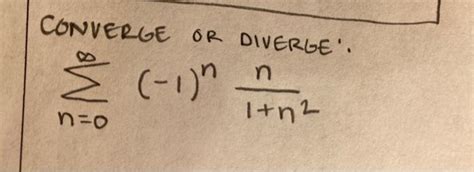 CONVERGE OR DIVERGE:
∞
∑ (-1)ⁿ n/(1+n²)
n=0